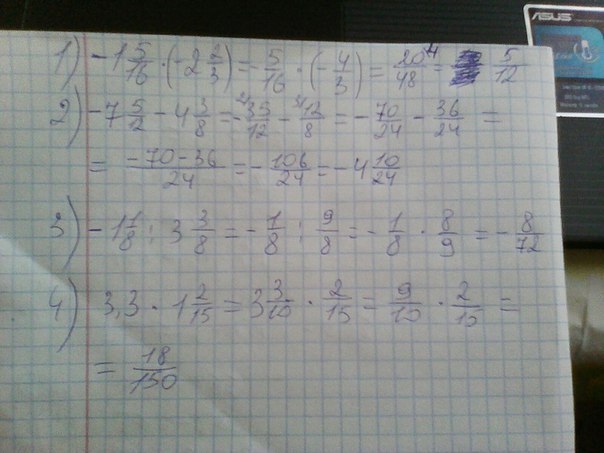 ASUS
1) -1 5/16 · (-2 2/3) = - 5/16 · (- 4/3) = 20/48 = 5/12
2) -7 5/2 - 4 3/8 = - 35/12 - 12/8 = - 70/24 - 36/24 =
= -70-36/24 = - 106/24 = -4 10/24
3) -1 1/8 : 3 3/8 = - 1/8 : 9/8 = - 1/8 · 8/9 = - 8/72
4) 3,3 · 1 2/15 = 3 3/10 · 2/15 = 9/10 · 2/15 =
= 18/150